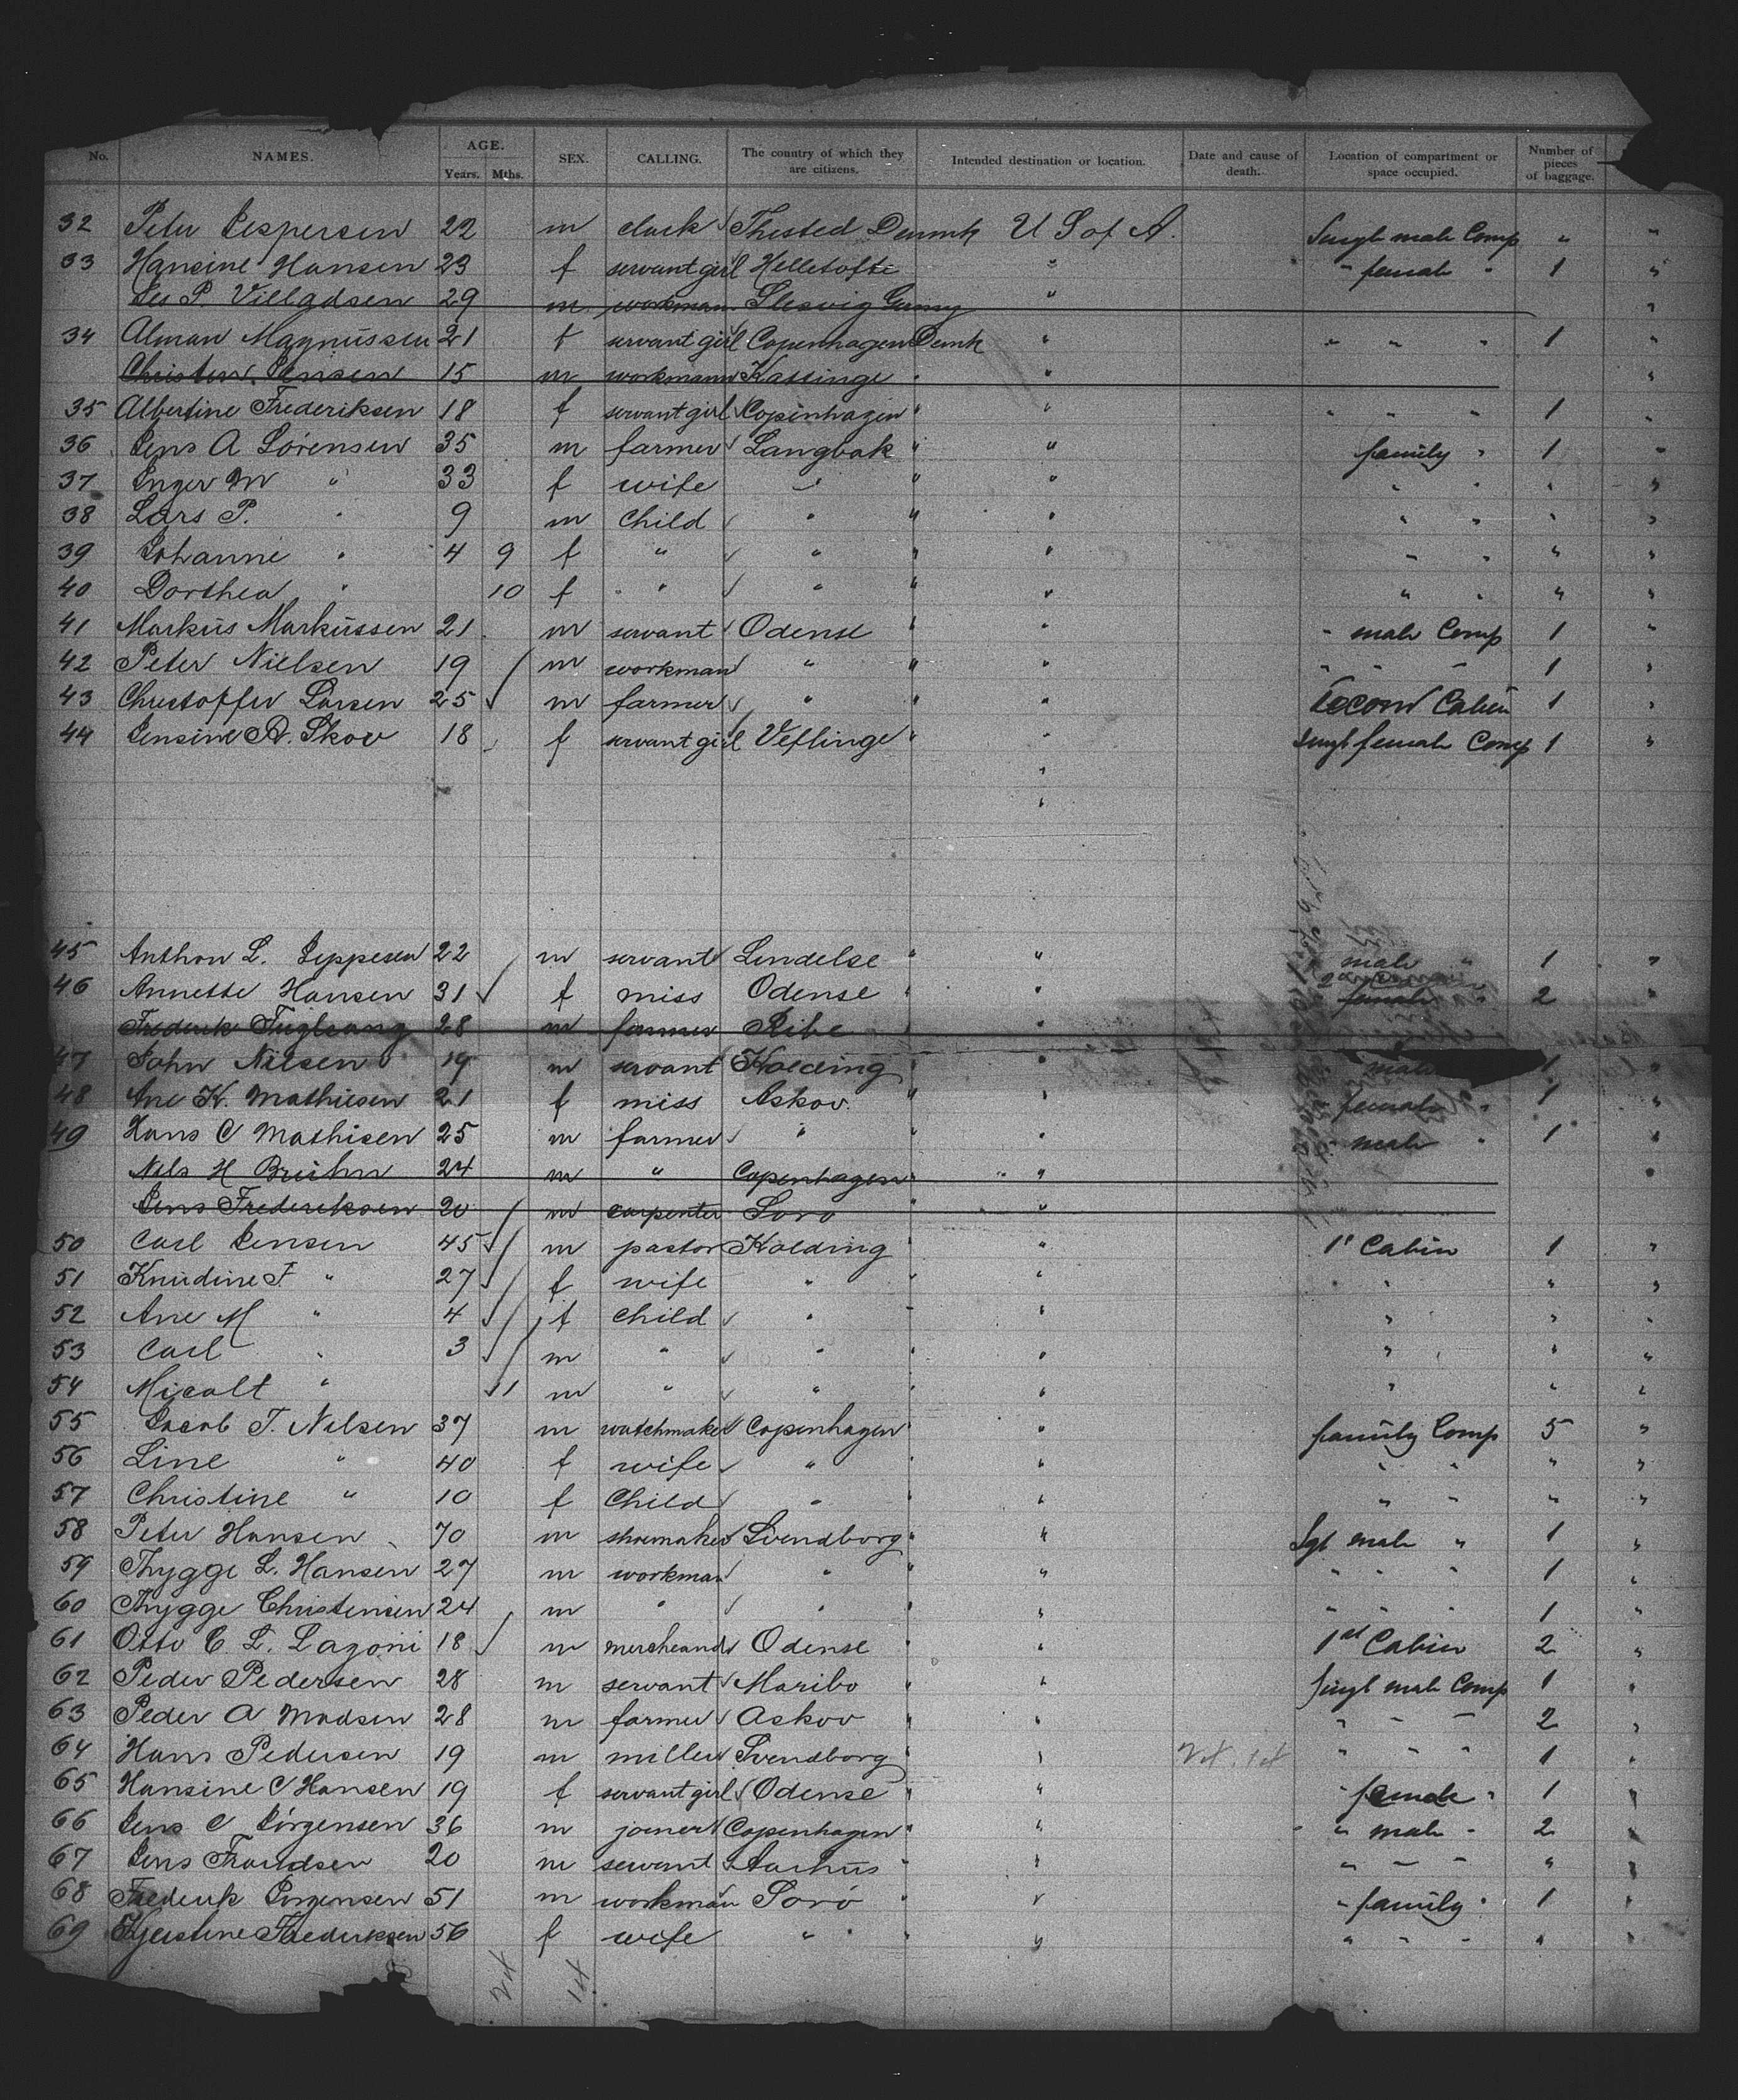 No. NAMES. AGE. Years. Mths. SEX. CALLING. The country of which they are citizens. Intended destination or location. Date and cause of death. Location of compartment or space occupied. Number of pieces of baggage.
32 Peter Jespersen 22 m clerk Thisted Denmk U S of A. Singl male Comp "
33 Hansine Hansen 23 f servant girl Helletofte " " female " 1 "
P. Villadsen 29 m workman Slesvig Germy " "
34 Alman Magnussen 21 f servant girl Copenhagen Demk " " " " 1 "
Christen Jensen 15 m workmann Kassinge " " "
35 Albertine Frederiksen 18 f servant girl Copenhagen " " " " " 1 "
36 Jens A Sørensen 35 m farmer Langbak " " family " 1 "
37 Inger M " 33 f wife " " " " " " "
38 Lars P. " 9 m child " " " " " " "
39 Johanne " 4 9 f " " " " " " " "
40 Dorthea " 10 f " " " " " " " "
41 Markus Markussen 21 m servant Odense " " " male Comp 1 "
42 Peter Nielsen 19 m workman " " " " " " 1 "
43 Christoffer Larsen 25 m farmer " " " Second Cabin 1 "
44 Jensine R. Skov 18 f servant girl Veflinge " " Singl female Comp 1 "
"
"
45 Anthon L. Jeppesen 22 m servant Lindelse " " " male " 1 "
46 Annette Hansen 31 f miss Odense " " female " 2 "
Frederik Fuglsang 28 m farmer Ribe " "
47 John Nilsen 19 m servant Kolding " " male 1 "
48 Ane K. Mathiesen 21 f miss Askov " " " female " 1 "
49 Hans C Mathisen 25 m farmer " " " male " 1 "
Nils H Bruhn 24 m " Copenhagen " " "
Jens Frederiksen 20 m carpenter Soro "
50 Carl Jensen 45 m pastor Kolding " " 1st Cabin 1 "
51 Knudine F. " 27 f wife " " " " " "
52 Ane M " 4 f child " " " " " "
53 Carl " 3 m " " " " " " "
54 Micalt " 11 m " " " " " " "
55 Jacob T. Nelsen 37 m watchmaker Copenhagen " " family Comp 5 "
56 Line " 40 f wife " " " " " " "
57 Christine " 10 f Child " " " " " " "
58 Peter Hansen 70 m shoemaker Svendborg " " Sgl male " 1 "
59 Thygge L. Hansen 27 m workman " " " " " " 1 "
60 Thygge Christensen 24 m " " " " " " " 1 "
61 Otto C. L. Lagoni 18 m mercheand Odense " 1st Cabin 2 "
62 Peder Pedersen 28 m servant Maribo " " Singl male Comp 1 "
63 Peder A Madsen 28 m farmer Askov " " " " " 2 "
64 Hans Pedersen 19 m miller Svendborg " " " " " 1 "
65 Hansine C Hansen 19 f servant girl Odense " " " female " 1 "
66 Jens C Jørgensen 36 m joiner Copenhagen " " " male " 2 "
67 Jens Frandsen 20 m servant Aarhus " " " " " " "
68 Frederik Jørgensen 51 m workman Sorö " " " family " 1 "
69 Kjerstine Frederiksen 56 f wife " " " " " " " "